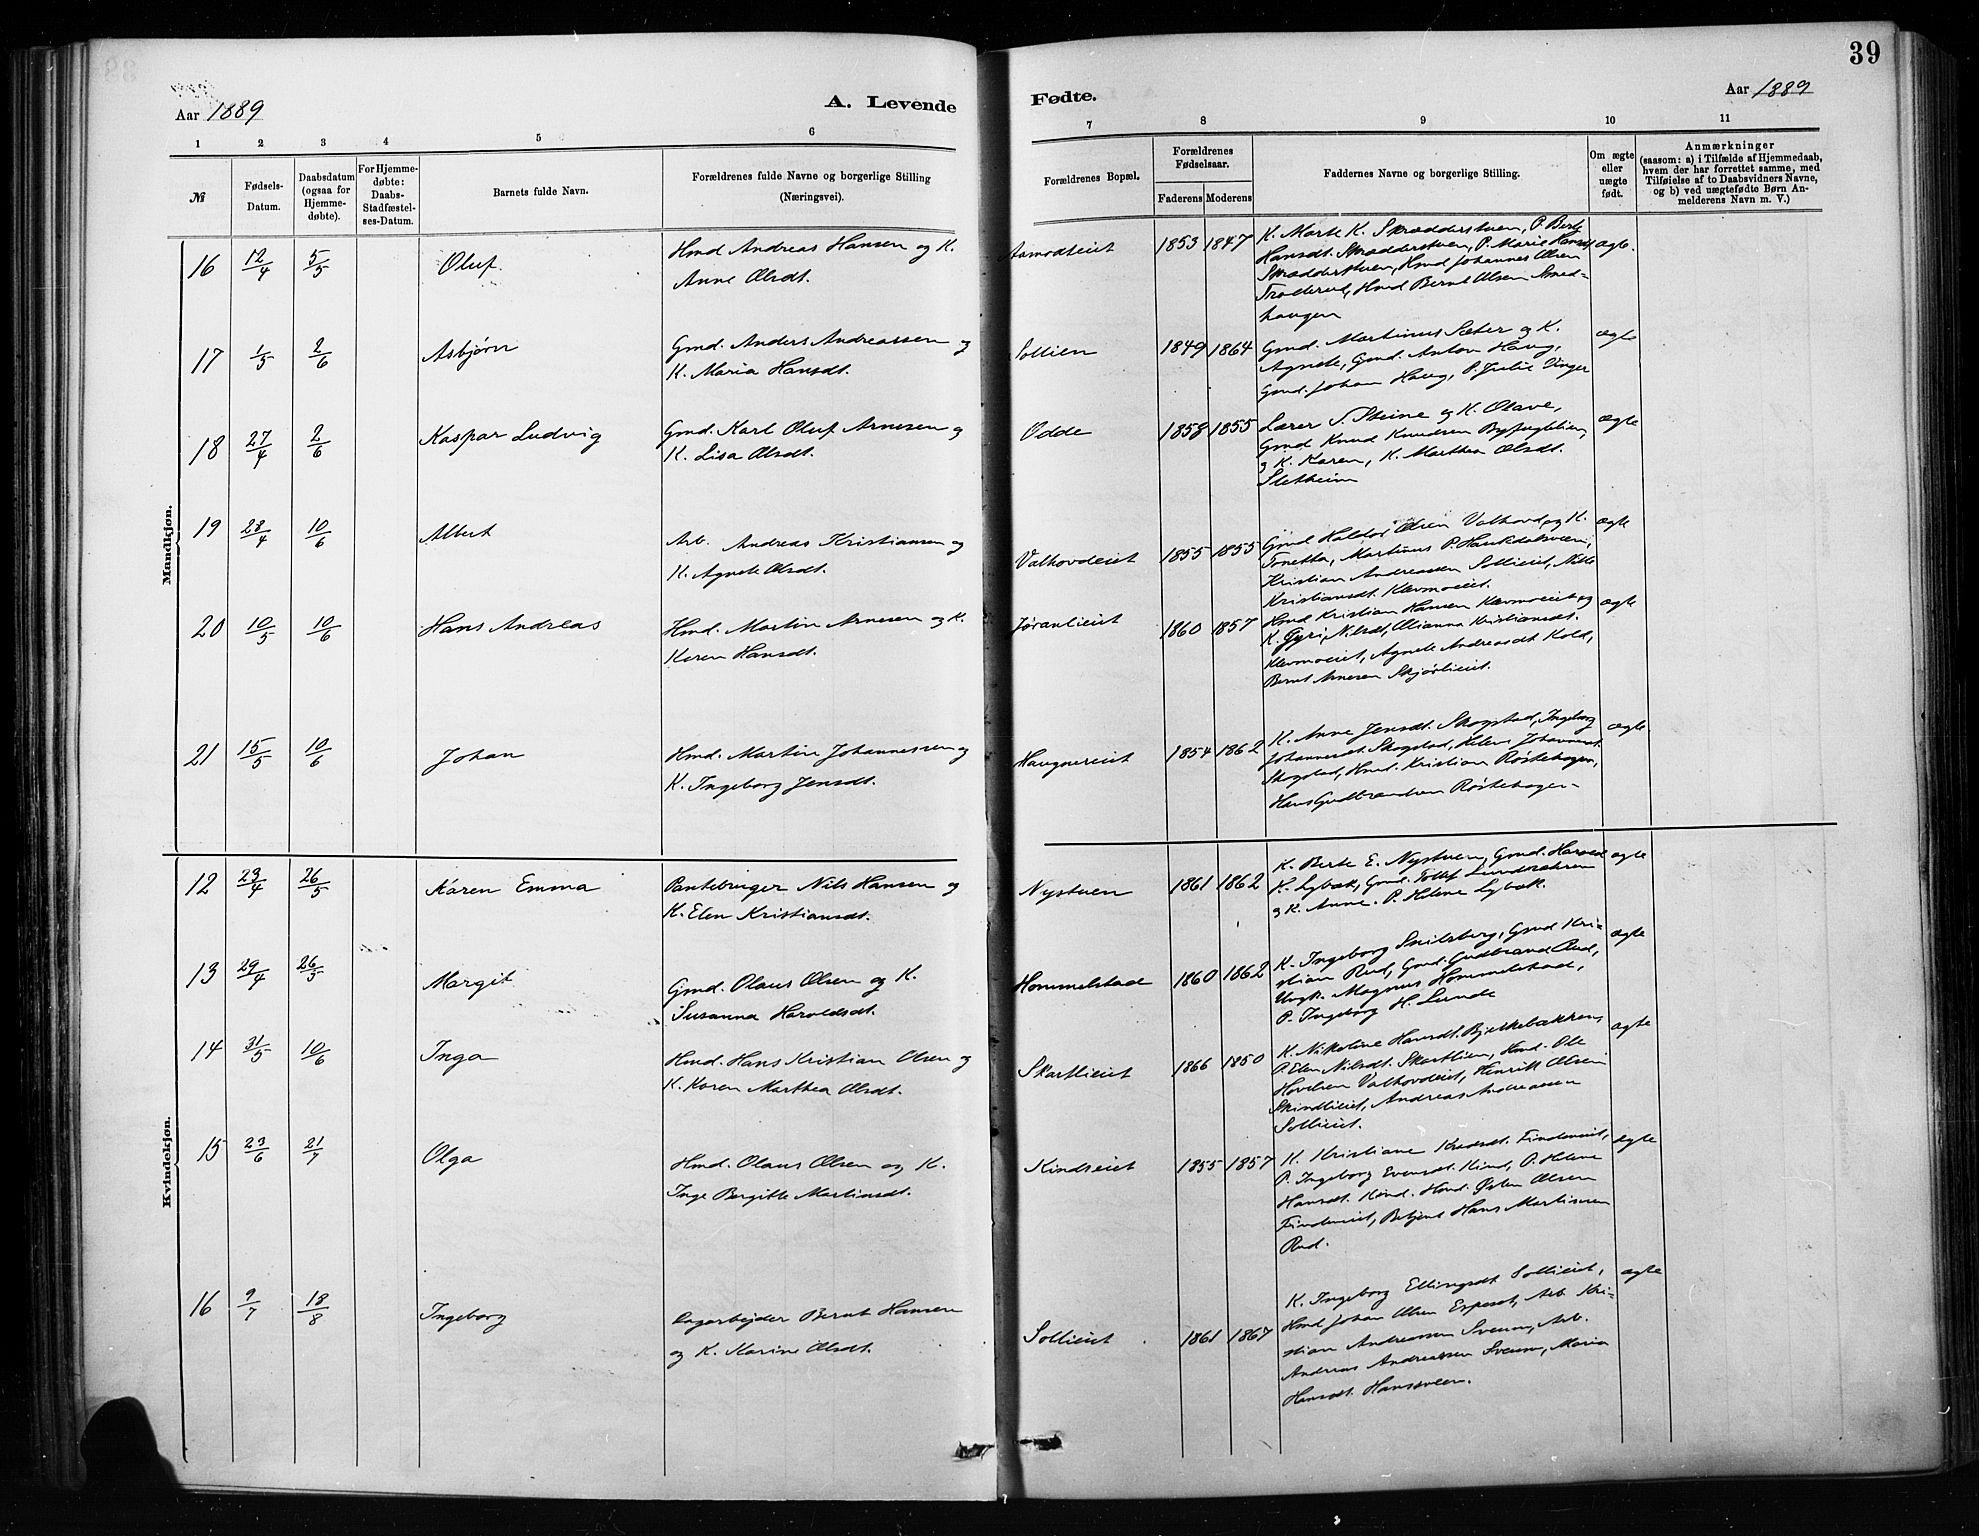 39
Aar 1889
A. Levende
Fødte.
Aar 1889
1 2 3 4 5 6 7 8 9 10 11
№
Fødsels-
Datum.
Daabsdatum
(ogsaa for
Hjemme-
døbte).
For Hjemme-
døbte:
Daabs-
Stadfæstel-
ses-Datum.
Barnets fulde Navn.
Forældrenes fulde Navne og borgerlige Stilling
(Næringsvei).
Forældrenes Bopæl.
Forældrenes
Fødselsaar.
Faderens Moderens
Faddernes Navne og borgerlige Stilling.
Om ægte
eller
uægte
født.
Anmærkninger
(saasom: a) i Tilfælde af Hjemmedaab,
hvem der har forrettet samme, med
Tilføielse af to Daabsvidners Navne,
og b) ved uægtefødte Børn An-
melderens Navn m. V.)
Mandkjøn.
16 12/4 5/5 Oluf.
Hmd Andreas Hansen og K.
Anne Olsdt.
Aamodteiet 1853 1847
K. Marte K. Skrædderstuen, P. Berte
Hansdt. Skrædderstuen, P. Marie Hansdt
Skrædderstuen, Hmd Johannes Olsen
Hmd Bernt Olsen Smed-
haugen
ægte.
17 1/5 2/6 Asbjørn
Gmd. Anders Andreassen og
K. Maria Hansdt.
Sollien 1849 1864
Gmd. Martinus Sæter og K.
Agnete, Gmd. Anton Haug,
Gmd. Johan Haug, P. Julie Unger
ægte
18 27/4 2/6 Kaspar Ludvig
Gmd. Karl Oluf Arnesen og
K. Lisa Olsdt.
Odde 1858 1855
Lærer S. Steine og K. Olave,
Gmd Knud Knudsen Byfuglien,
og K. Karen, K. Marthea Olsdt.
Sletheim
ægte
19 28/4 10/6 Albert
Arb. Andreas Kristiansen og
K. Agnete Olsdt.
Valhovdeiet 1855 1855
Gmd Haldor Olsen Valhovd og K.
Tonetta, Martinus P.
Kristian Andreassen Sollieiet,
Kristiansdt. Klevmoeiet.
ægte
20 10/5 10/6 Hans Andreas
Hmd. Martin Arnesen og K.
Karen Hansdt.
Jøranlieiet 1860 1857
Hmd Kristian Hansen Klevmoeiet og
K. Gyri Nilsdt, Olianna Kristiansdt.
Klevmoeiet, Agnete Andreasdt Kold,
Bernt Arnesen Skjørlieiet.
ægte
21 15/5 10/6 Johan
Hmd. Martin Johannessen og
K. Ingeborg Jensdt.
Haugnereiet 1854 1862
K. Anne Jensdt. Skogstad, Ingeborg
Johannesdt. Skogstad, Helene Johannesdt.
Skogstad, Hmd. Kristian Røstehagen,
Hans Gudbrandsen Røstehagen.
ægte
Kvindekjøn.
12 23/4 26/5 Karen Emma
Pantebruger Nils Hansen og
K. Elen Kristiansdt.
Nystuen 1861 1862
K. Berte E. Nystuen, Gmd. Harald
K. Lybæk, Gmd. Tollef Lundsæteren
og K. Anne. P. Helene Lybæk.
ægte
13 29/4 26/5 Margit
Gmd. Olaus Olsen og K.
Susanna Haroldsdt.
Hommelstad 1860 1862
K. Ingeborg Snilsberg, Gmd Kri-
stian Rud, Gmd. Gudbrand Rud,
Ungk. Magnus Hommelstad,
P. Ingeborg H. Lunde
ægte
14 31/5 10/6 Inga
Hmd. Hans Kristian Olsen og
K. Karen Marthea Olsdt.
Skartlieiet 1866 1850
K. Nikoline Hansdt. Bjerkebakken,
P. Elen Nilsdt. Skartlien, Hmd. Ole
Hovelsen Valhovdeiet, Henrik Olsen
Skindlieiet, Andreas Andreassen
Sollieiet.
ægte
15 23/6 21/7 Olga
Hmd. Olaus Olsen og K.
Inge Bergitte Martinsdt.
Kindseiet 1855 1857
K. Kristiane Findeneiet,
P. Ingeborg Evensdt. Kind, P. Helene
Hansdt. Kind. Hmd. Østen Olsen
Findeneiet, Betjent Hans Martinsen
Rud.
ægte
16 9/7 18/8 Ingeborg
Dagarbejder Bernt Hansen
og K. Karine Olsdt.
Sollieiet 1861 1867
K. Ingeborg Ellingsdt Sollieiet,
Hmd Johan Olsen Esperset, Arb Kri-
stian Andreassen Sveum, Arb.
Andreas Andreassen Sveum, Maria
Hansdt. Hanssveen.
ægte